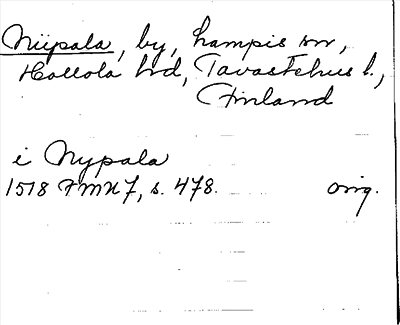 Niipala, by, Lampis sn,
Hollola hd, Tavastehus l.,
Finland
i Nypala
1518 FMU 7, s. 478. orig.